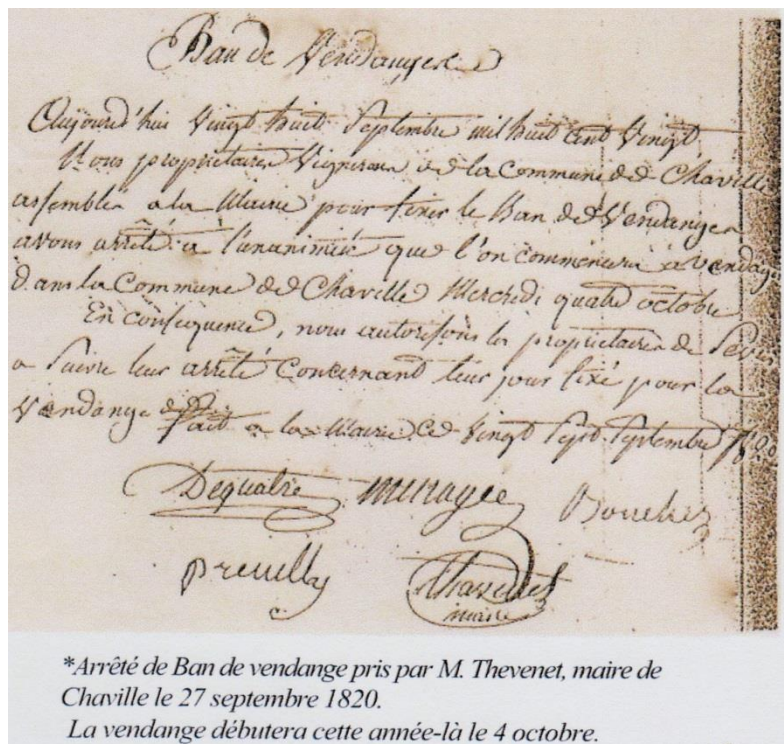 Ban de Vendanges
Aujourd'hui Vingt huit Septembre mil huit cent Vingt
Nous propriétaires Vignerons de la Commune de Chaville
assemblés a la Mairie pour fixer le Ban de Vendanges
avons arrêté à l'unanimité que l'on commencera à Vendang
dans la Commune de Chaville Mercredi quatre octobre
En conséquence, nous autorisons les propriétaires de Sèvres
a Suivre leur arrêté Concernant leur jour fixé pour la
Vendange
fait a la Mairie ce Vingt Sept Septembre 1820
Dequatre Menagee Boucher
preuilly Thevenet
maire
*Arrêté de Ban de vendange pris par M. Thevenet, maire de
Chaville le 27 septembre 1820.
La vendange débutera cette année-là le 4 octobre.